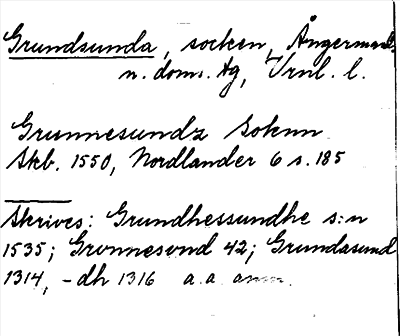 Grundsunda, socken, Ångermanl.
n. doms. tg, Vrnl. l.
Grunnesundz Soknn
Skb. 1550, Nordlander 6 s. 185
Skrives: Grundhessundhe s:n
1535; Gronnesond 42; Grundasund
1314, -dh 1316 a.a. anm.